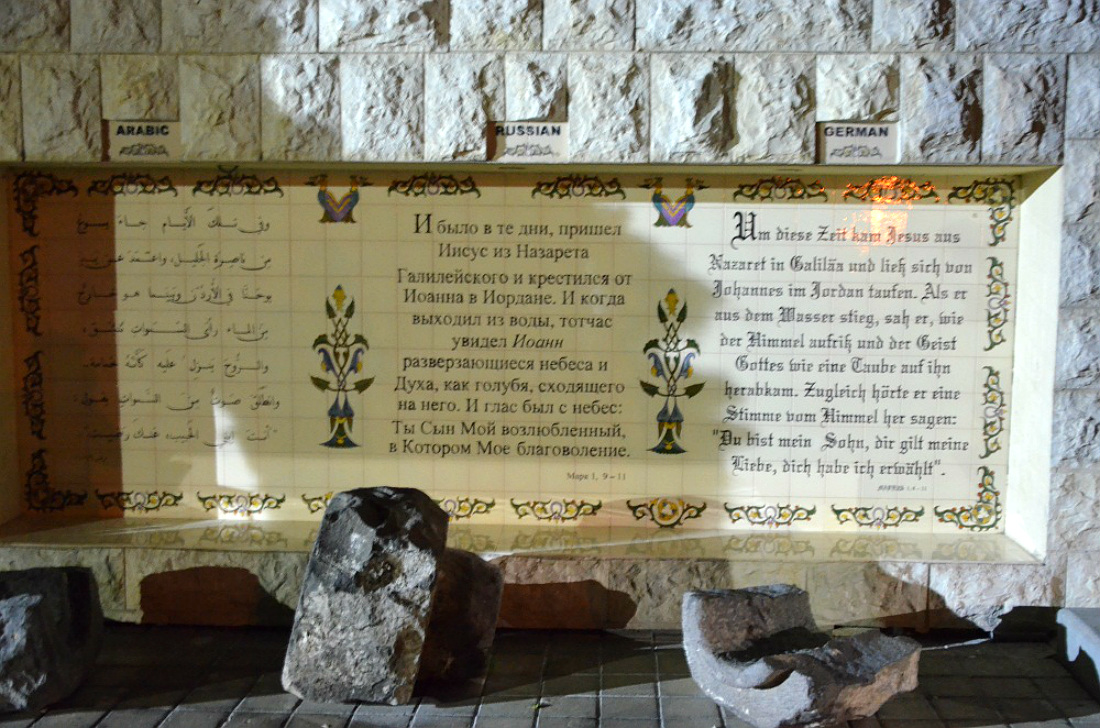 ARABIC
RUSSIAN
GERMAN
وفي تلك الأيام جاء يسوع
من ناصرة الجليل، واعتمد عن يد
يوحنا في الأردن وبينما هو خارج
من الماء رأى السموات تنشق،
والروح ينزل عليه كأنه حمامة.
وانطلق صوت من السموات يقول:
"أنت ابني الحبيب عنك رضيت".
И было в те дни, пришел
Иисус из Назарета
Галилейского и крестился от
Иоанна в Иордане. И когда
выходил из воды, тотчас
увидел Иоанн
разверзающиеся небеса и
Духа, как голубя, сходящего
на него. И глас был с небес:
Ты Сын Мой возлюбленный,
в Котором Мое благоволение.
Марк 1, 9-11
Um diese Zeit kam Jesus aus
Nazaret in Galiläa und ließ sich von
Johannes im Jordan taufen. Als er
aus dem Wasser stieg, sah er, wie
der Himmel aufriß und der Geist
Gottes wie eine Taube auf ihn
herabkam. Zugleich hörte er eine
Stimme vom Himmel her sagen:
"Du bist mein Sohn, dir gilt meine
Liebe, dich habe ich erwählt".